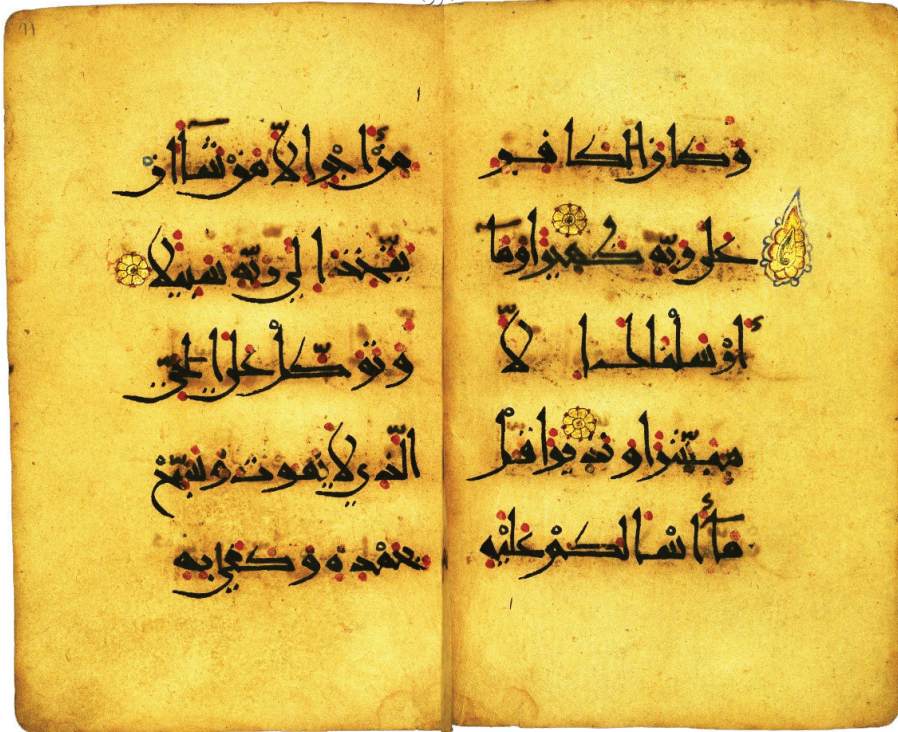 وكان الكافر
على ربه ظهيرا وما
أرسلناك إلا
مبشرا ونذيرا قل
ما أسألكم عليه
من أجر إلا من شاء أن
يتخذ إلى ربه سبيلا
وتوكل على الحي
الذي لا يموت وسبح
بحمده وكفى به